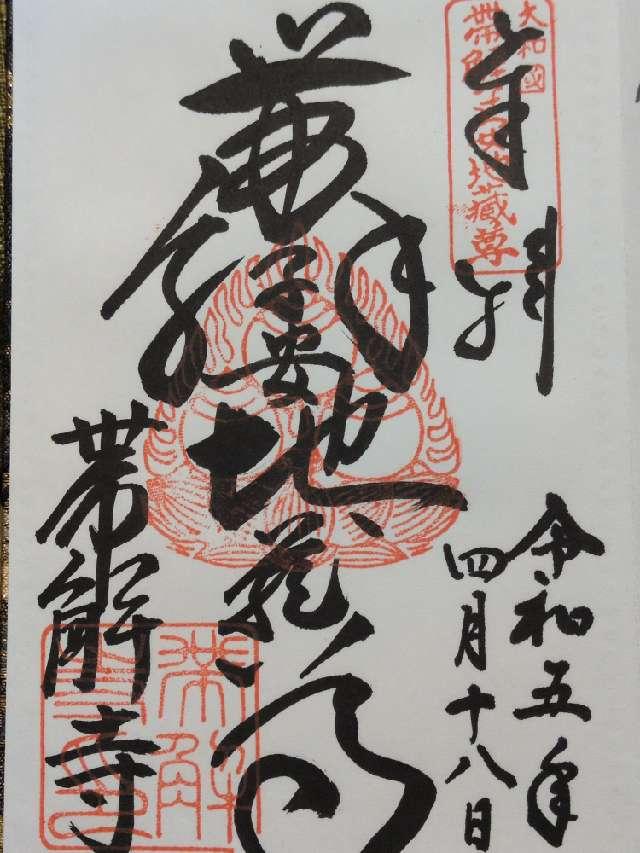 大和國
帶解子安地藏尊
奉拝
令和五年
四月十八日
帶解
子安
地蔵尊
帯解寺